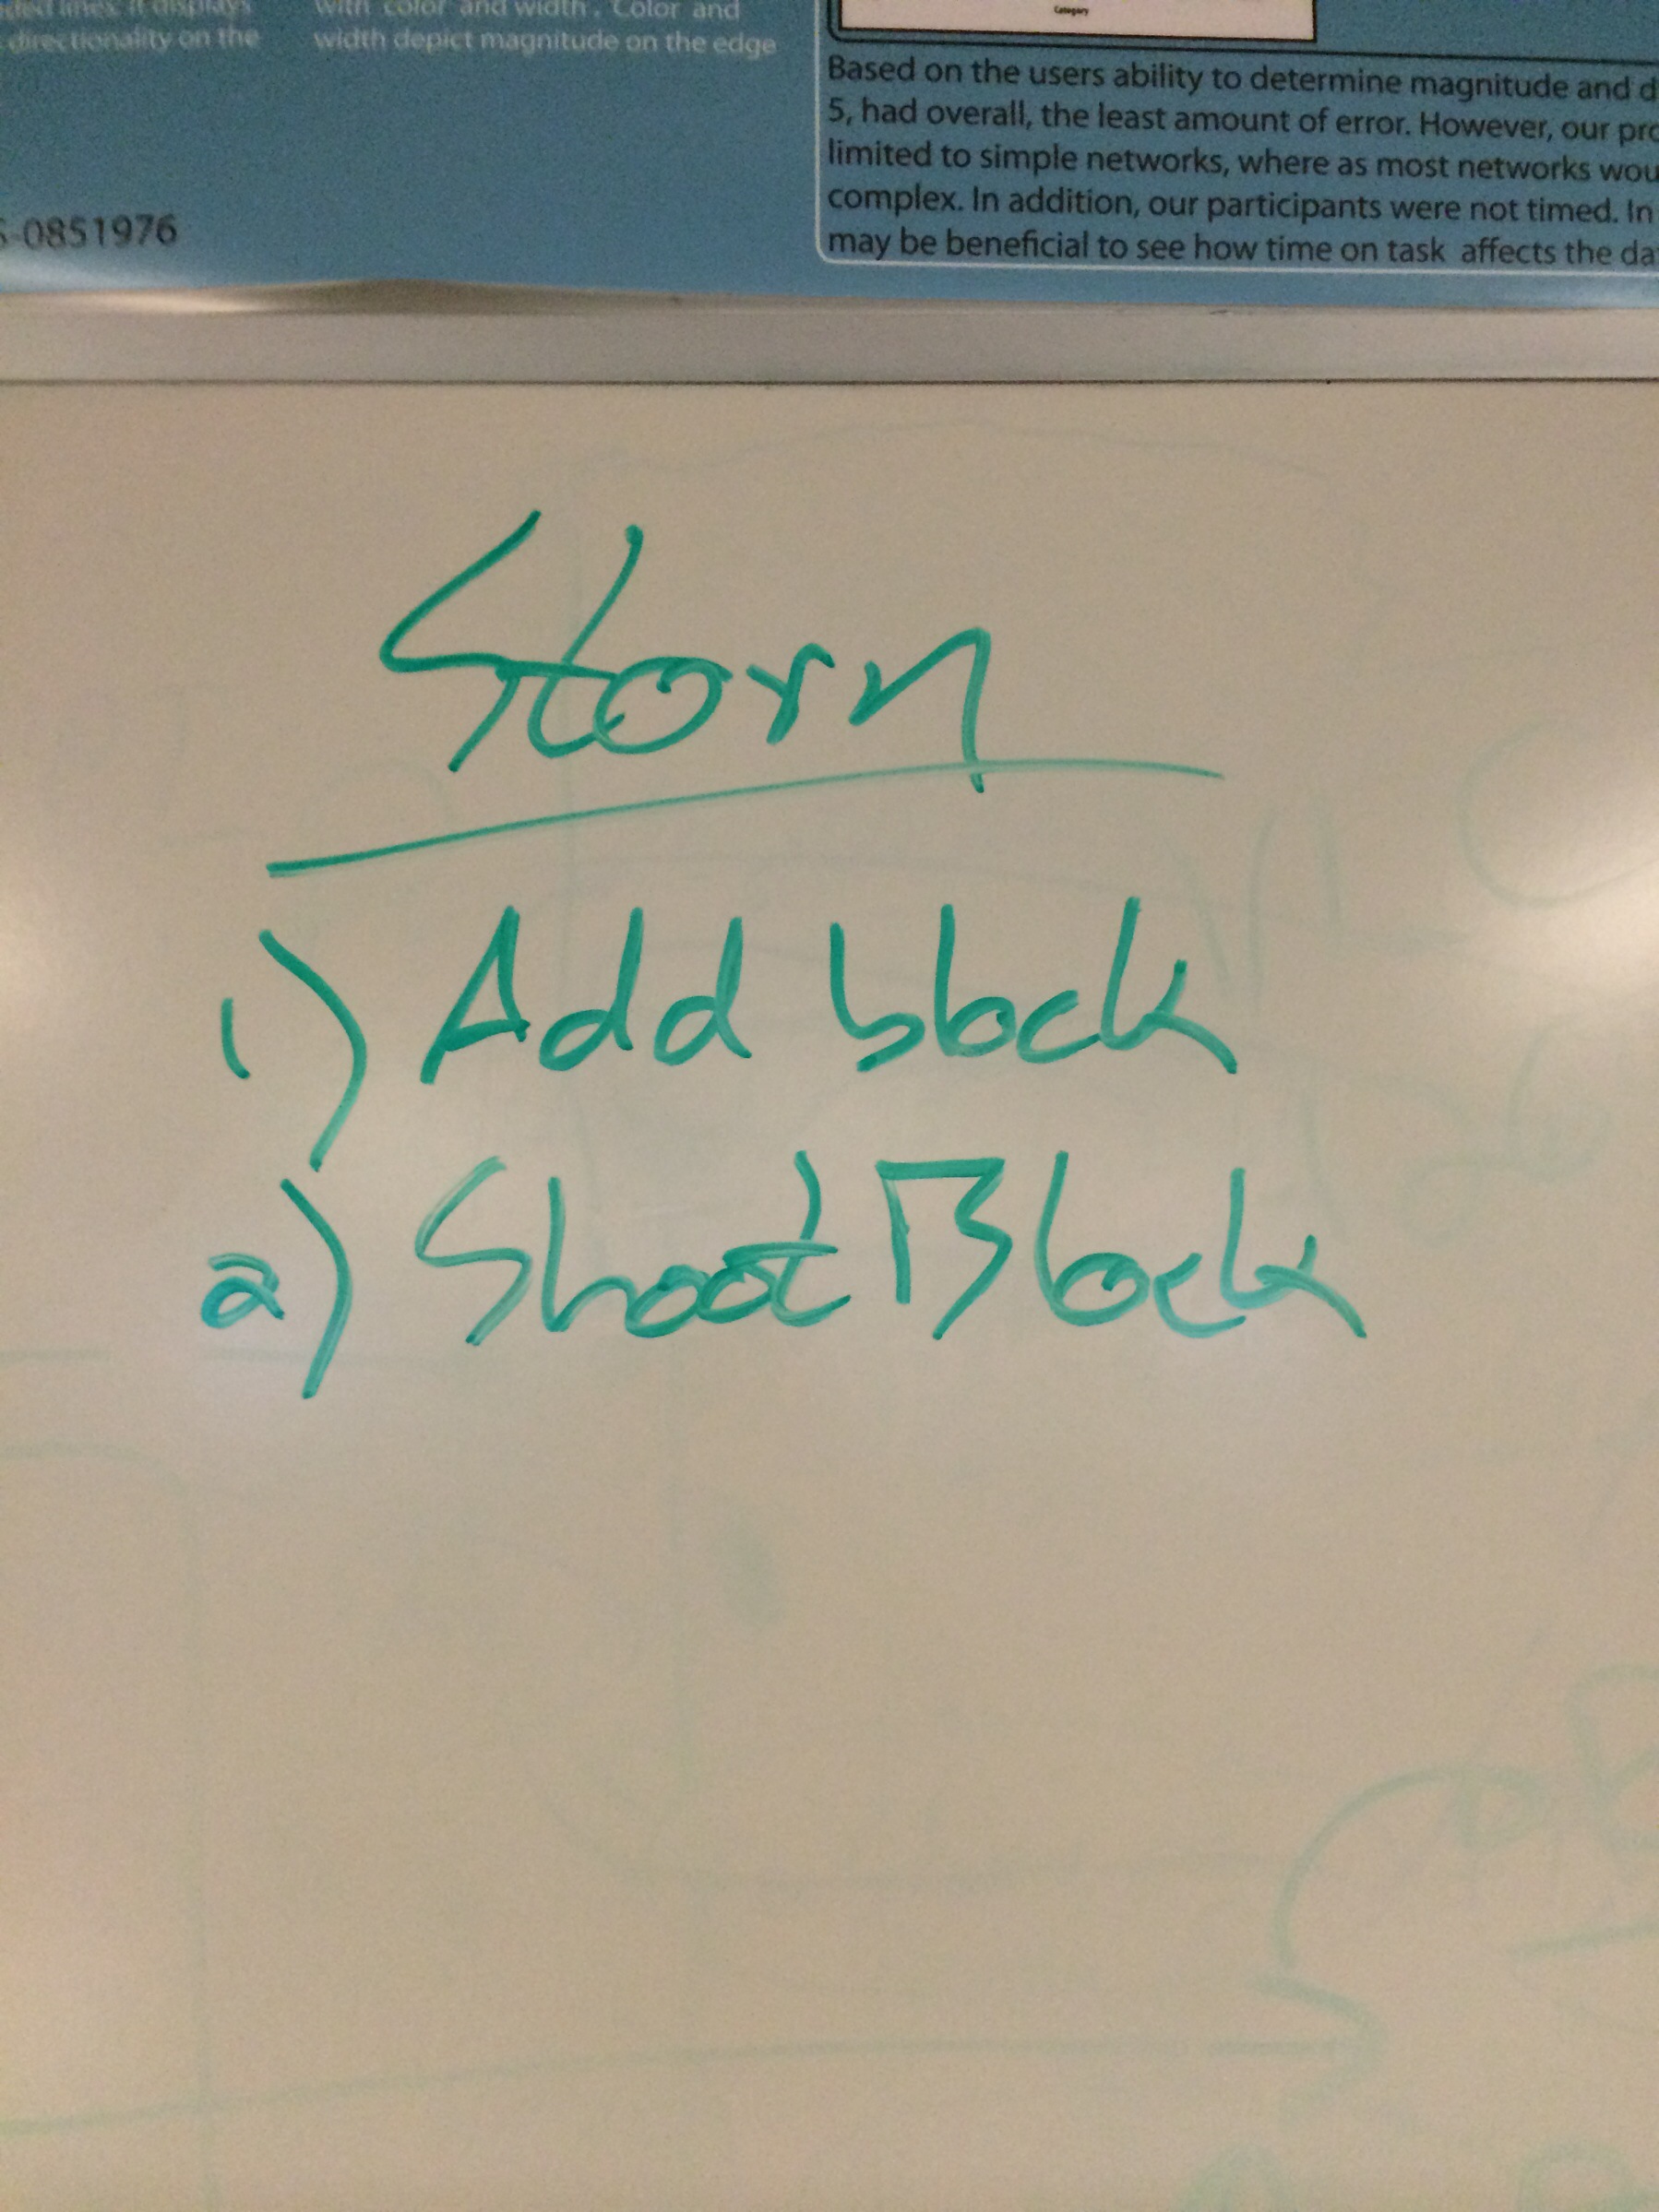 ded lines. It displays
directionality on the
with color and width. Color and
width depict magnitude on the edge
S-0851976
Category
Based on the users ability to determine magnitude and d
5, had overall, the least amount of error. However, our pro
limited to simple networks, where as most networks wou
complex. In addition, our participants were not timed. In
may be beneficial to see how time on task affects the da
Storn
1) Add block
2) Shoot Block